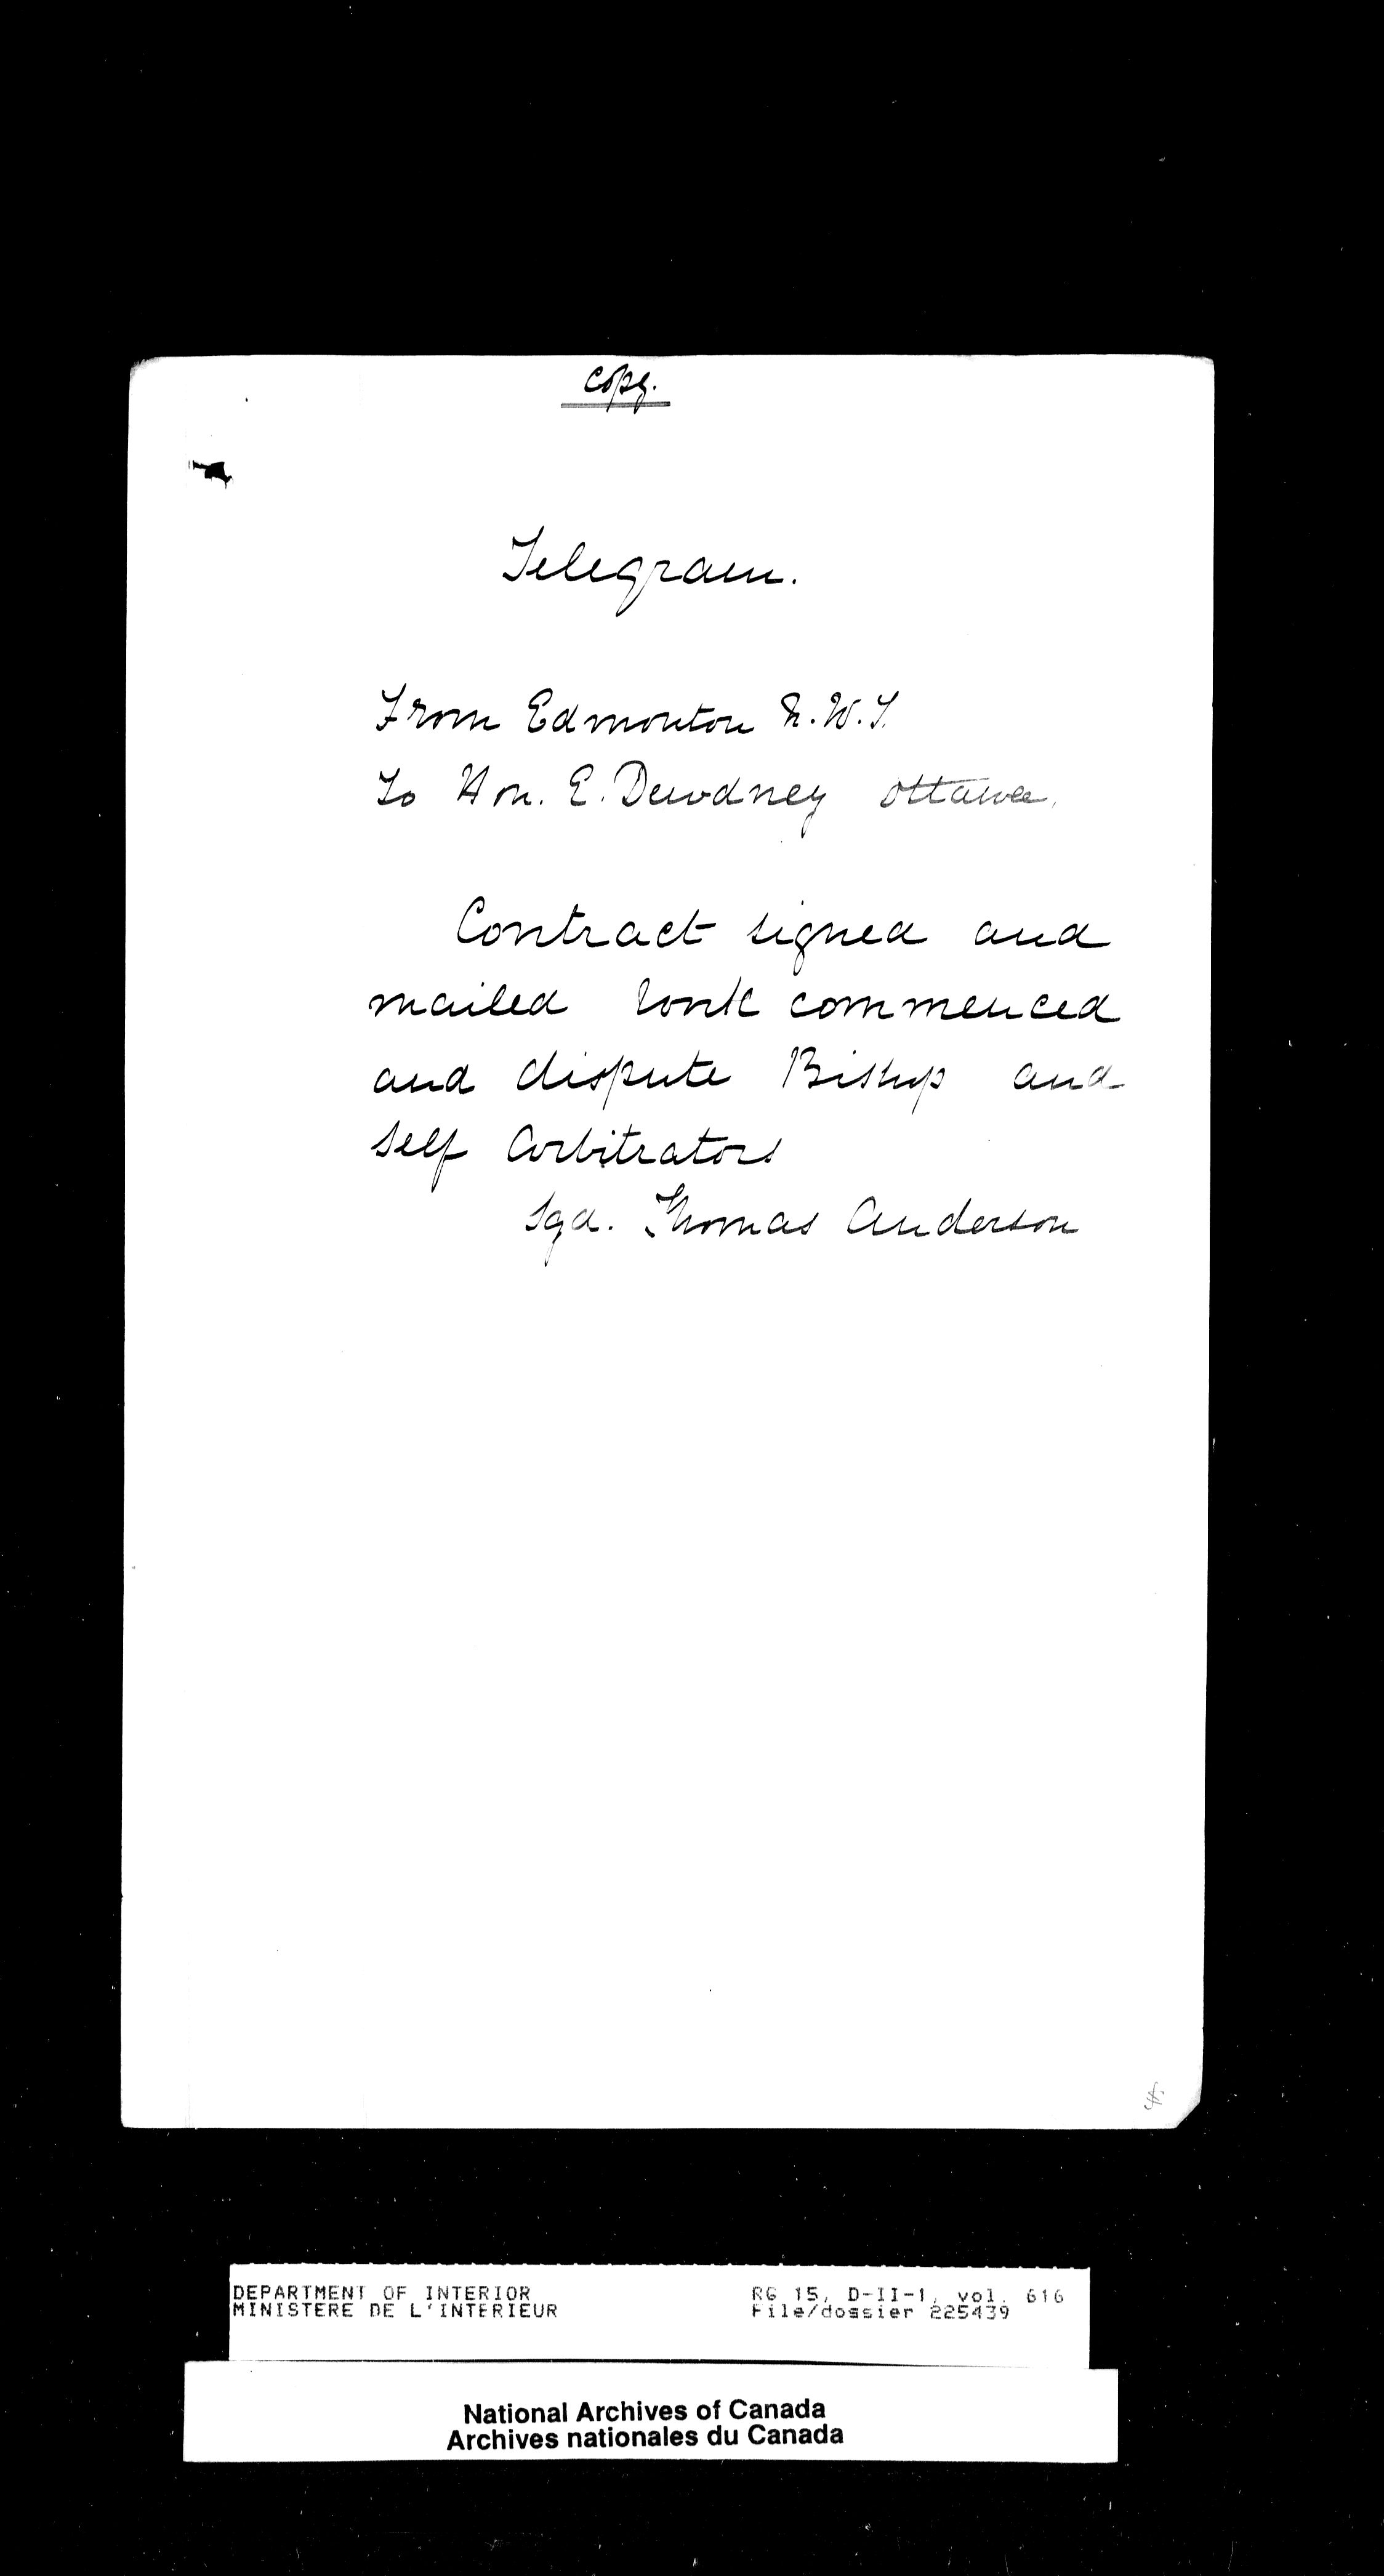 Copy.
Telegram.
From Edmonton N.W.T.
To Hon. E. Dewdney Ottawa.
Contract signed and
mailed work commenced
and dispute Bishop and
self Arbitrators
Sgd. Thomas Anderson
DEPARTMENT OF INTERIOR
MINISTERE DE L'INTERIEUR
RG 15, D-II-1, vol. 616
File/dossier 225439
National Archives of Canada
Archives nationales du Canada